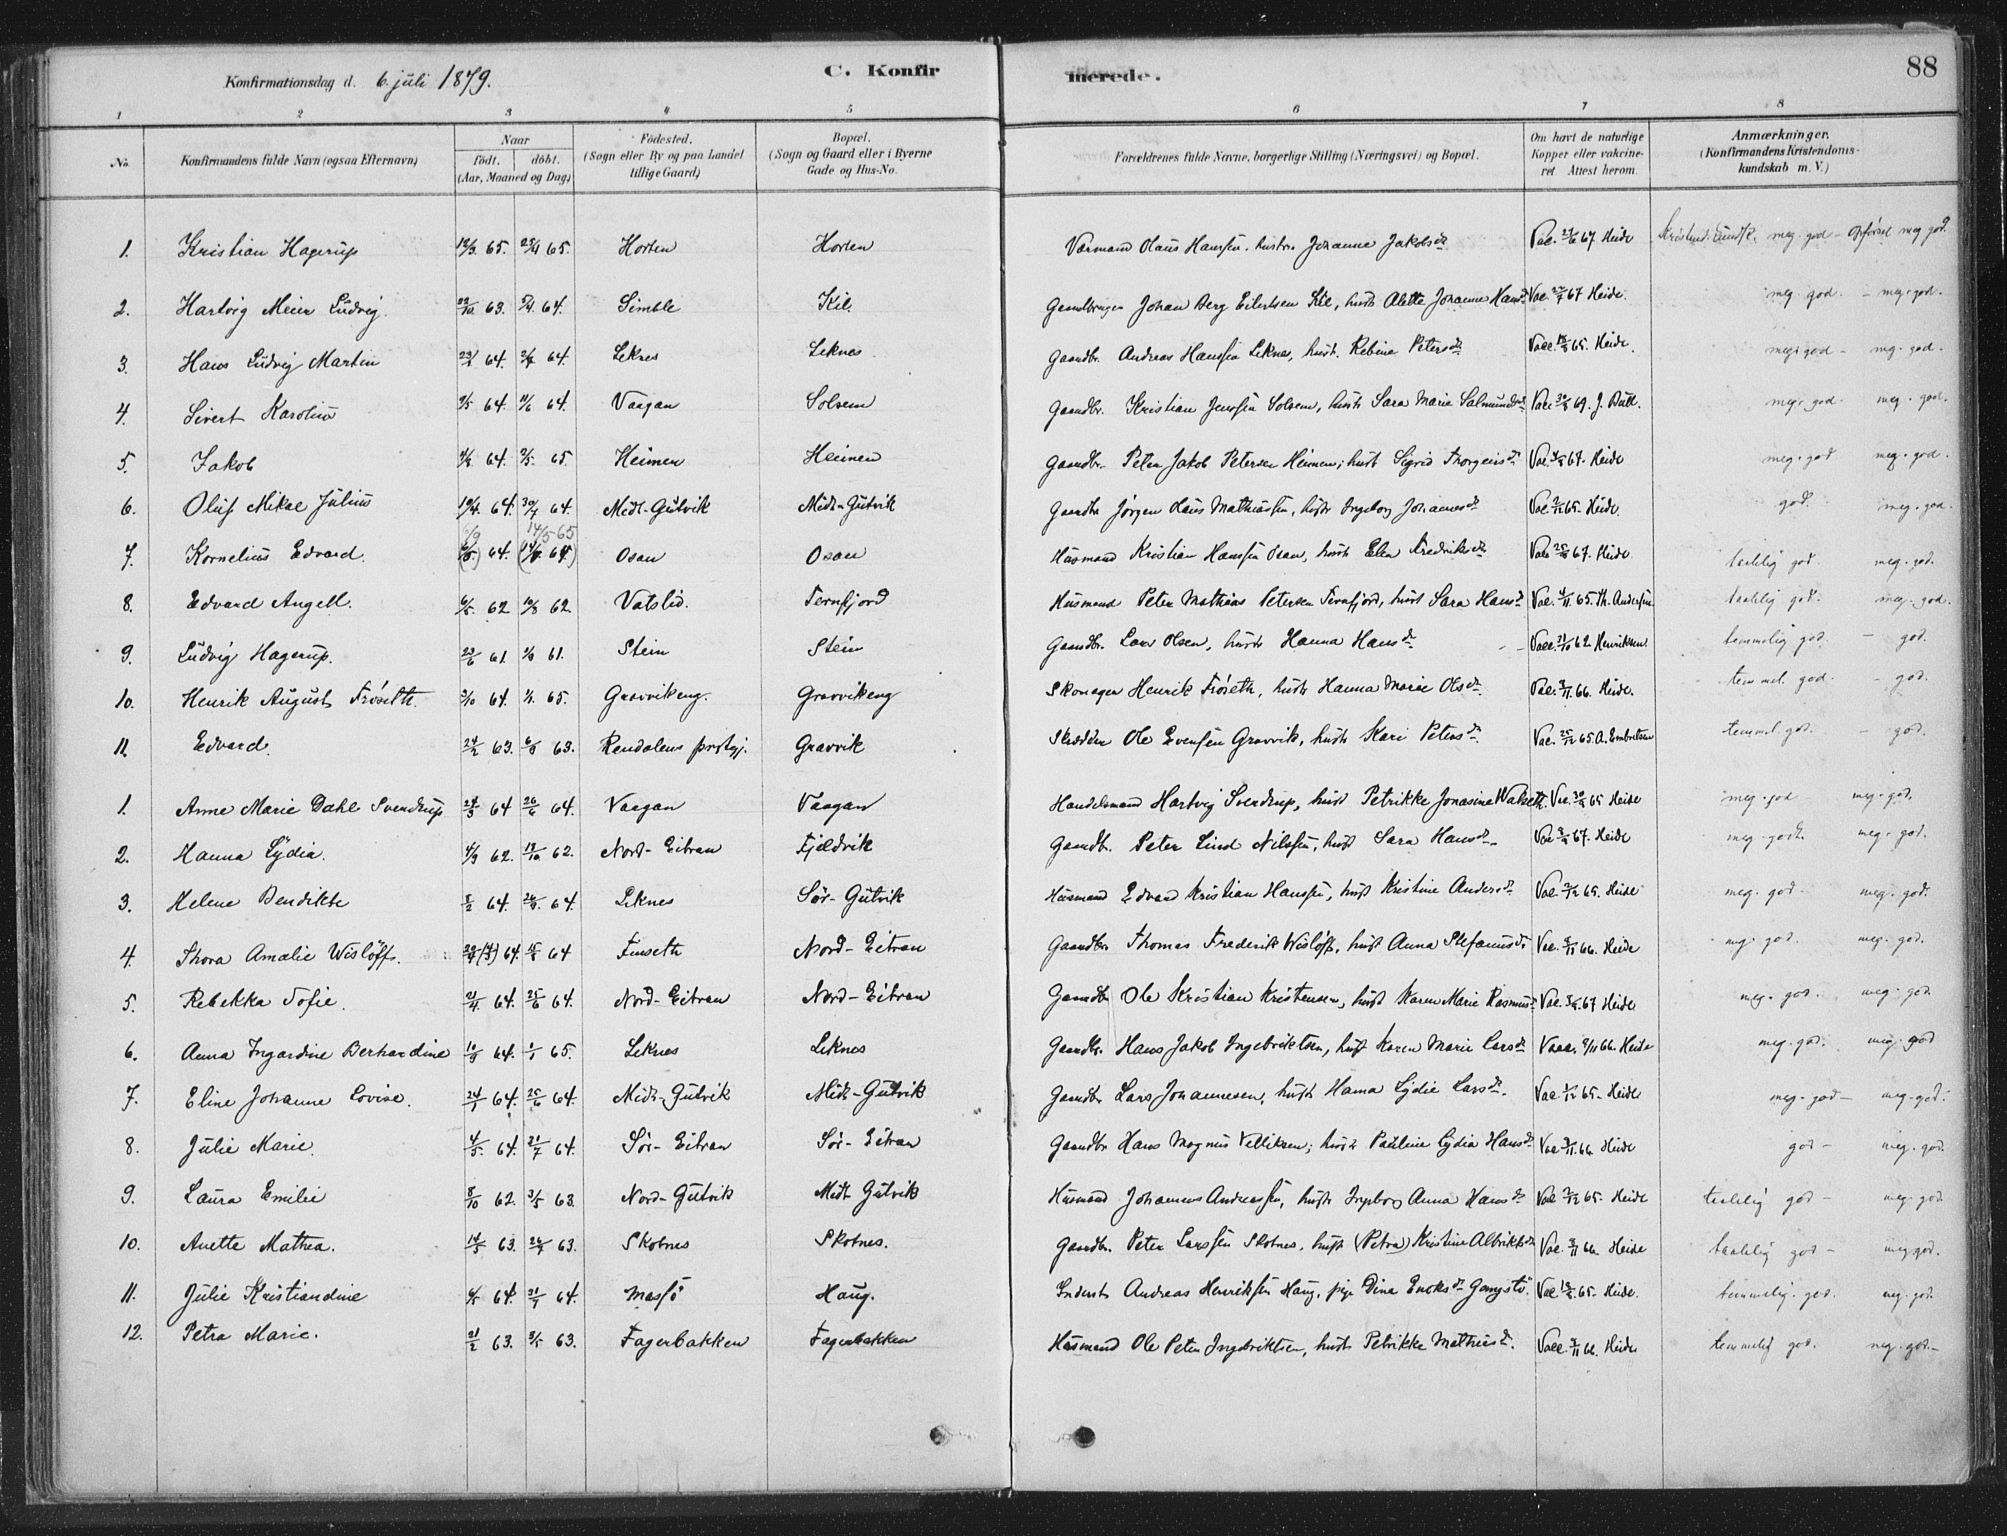 Konfirmationsdag d. 6. juli 1879. C. Konfirmerede. 88
1 2 3 4 5 6 7 8
No. Konfirmandens fulde Navn (ogsaa Efternavn) Naar født. døbt. (Aar, Maaned og Dag) Fødested. (Sogn eller By og paa Landet tillige Gaard) Bopæl. (Sogn og Gaard eller i Byerne Gade og Hus-No. Forældrenes fulde Navne, borgerlige Stilling (Næringsvei) og Bopæl. Om havt de naturlige Kopper eller vakcineret Attest herom. Anmærkninger. (Konfirmandens Kristendomskundskab m. V.)
1. Kristian Hagerup 12/3 65. 25/4 65. Horten Horten Varmand Olaus Hansen, hustr. Johanna Jakobsdr Vac. 67 Heide meg. god - Opførsel meg god.
2. Hartvig Meier Ludvig. 22/10 63. 64. Simble Kil. Johan Berg Eilertsen Kil, hustr Alette Johanna Hansdr Vac. 67 Heide. meg. god. - meg. god.
3. Hans Ludvig Martin 64. 64. Leknes Leknes Gaardbr. Andreas Hansen Leknes, hust. Rebina Petersdr Vacc. 65. Heide. meg. god - meg. god.
4. Sivert Karolius 9/5 64. 64. Vaagan Solsem Gaardbr. Kristian Jensen Solsem, hustr Sara Marie Salmundsdr Vac. 69. J. Bull. meg. god. meg. god.
5. Jakob 64. 65. Heimen Heimen Gaardbr. Peter Jakob Petersen Heimen; hust Sigrid Thorgeirsdr Vac. 67. Heide meg. god meg. god.
6. Oluf Mikal Julius 64. 64. Midt-Gutvik Midt-Gutvik Gaardbr Jørgen Olaus Mathiassen, hustr Ingeborg Johannesdr Vac. 65. Heide. god. meg. god.
7. Kornelius Edvard 64. 14/5-65 Osan Osan Husmand Kristian Hansen Osan, hustr Elen Fredriksdr Vac. 67. Heide. taalelig god. meg. god.
8. Edvard Angell. 6/5 62 10/8 62. Vatslid. Ternfjord Husmand Peter Mathias Petersen Ternfjord, hust Sara Hansdr Vac. 65. Th. Andersen taalelig god. meg. god.
9. Ludvig Hagerup. 23/6 61. 61. Stein Stein Gaardbr. Lars Olsen, hustr Hanna Hansdr Vacc. 62. Henriksen. temmelig god. - god.
10. Henrik August Frøseth. 64. 65. Gravvikeng. Gravvikeng Skomager Henrik Frøseth, hustr Hanna Marie Olsdr. Vac. 66. Heide. temmel. god. - god.
11. Edvard. 63. 63. Rendalens prstgj. Gravvik Skrædder Ole Evensen Gravvik, hustr Kari Petersdr. Vac. 25/12 65. A. Embretsen temmel. god. - god.
1. Anne Marie Dahl Svendrup 64 64. Vaagan Vaagan Handelsmand Hartvig Svendrup, hust Petrikke Jonasine Walseth. Vac. 65 Heide meg. god meg. god.
2. Hanna Lydia. 4/9 62. 62. Nord-Eitran Fjeldvik Gaardbr. Peter Lind Nilssen, hust Sara Hansdr. Vac 67. Heide meg. godt. meg. god.
3. Helene Bendikte 64. 64. Leknes Sør-Gutvik Husmand Edvard Kristian Hanssen, hust Kristine Andersdr Vac. 65. Heide meg. god - meg. god.
4. Thora Amalie Wisløff. 64. 64 Finseth Nord-Eitran Gaardbr. Thomas Frederik Wisløff, hust Anna Stefanusdr Vac. 66. Heide meg god. meg. god.
5. Rebekka Sofie. 21/4 64. 25/6 64. Nord-Eitran Nord-Eitran Gaardbr Ole Kristian Kristensen, hust Karen Marie Rasmusdr Vac. 67 Heide meg. god. meg. god.
6. Anna Ingardine Berhardine 64. 65. Leknes Leknes Gaardbr. Hans Jakob Ingebriktsen, hust Karen Marie Larsdr Vacc. 9/11 66. Heide meg. god. meg. god
7. Eline Johanne Lovise. 64. 25/6 64. Midt-Gutvik Midt-Gutvik Gaardbr Lars Johannesen, hustr Hanna Lydie Larsdr. Vac 65. Heide meg. god - meg. god.
8. Julie Marie. 4/5 64. 31/7 64. Sør-Eitran Sør-Eitran Gaardbr Hans Magnus Velliksen; hustr Pauline Lydia Hansdr Vac 66. Heide god - meg. god.
9. Laura Emilie 8/10 62. 3/5 63. Nord-Gutvik Midt Gutvik Husmand Johannes Andreassen, hustr Ingeborg Anna Hansdr Vac 65. Heide taalelig god - meg. god
10. Anette Mathea. 14/5 63. 26/7 63. Skotnes Skotnes. Gaardbr. Peter Larssen Skotnes, hust (Petra) Kristine Albriktsdr Vac. 66. Heide taalelig god - meg god.
11. Julie Kristiandine 64. 31/7 64. Masø Haug. Inderst Andreas Henriksen Haug, pige Dina Enoksdr Gangstø. Vac. 65. Heide. temmelig. god. meg. god.
12. Petra Marie. 21/2 63. 63. Fagerbakken Fagerbakken Husmand Ole Peter Ingebriktsen, hustr Petrikke Mathiasdr. Vacc. 66. Heide temmelig god. meg. god. -